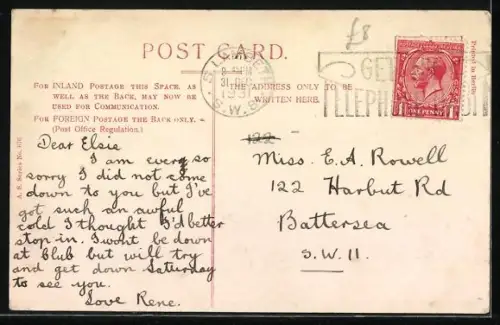 £8
POST CARD.
FOR INLAND POSTAGE THIS SPACE, AS
WELL AS THE BACK, MAY NOW BE
USED FOR COMMUNICATION.
FOR FOREIGN POSTAGE THE BACK ONLY.
(Post Office Regulation.)
THE ADDRESS ONLY TO BE
WRITTEN HERE.
31 DEC
1931
S.W.
GET
TELEPHONE
ONE PENNY
Printed in Berlin
A. S. Series No.
Dear Elsie
I am ever so
sorry I did not come
down to you but I've
got such an awful
cold I thought I'd better
stop in. I wont be down
at Club but will try
and get down Saturday
to see you.
Love Rene.
122
Miss. E. A. Rowell
122 Harbut Rd
Battersea
S.W.11.